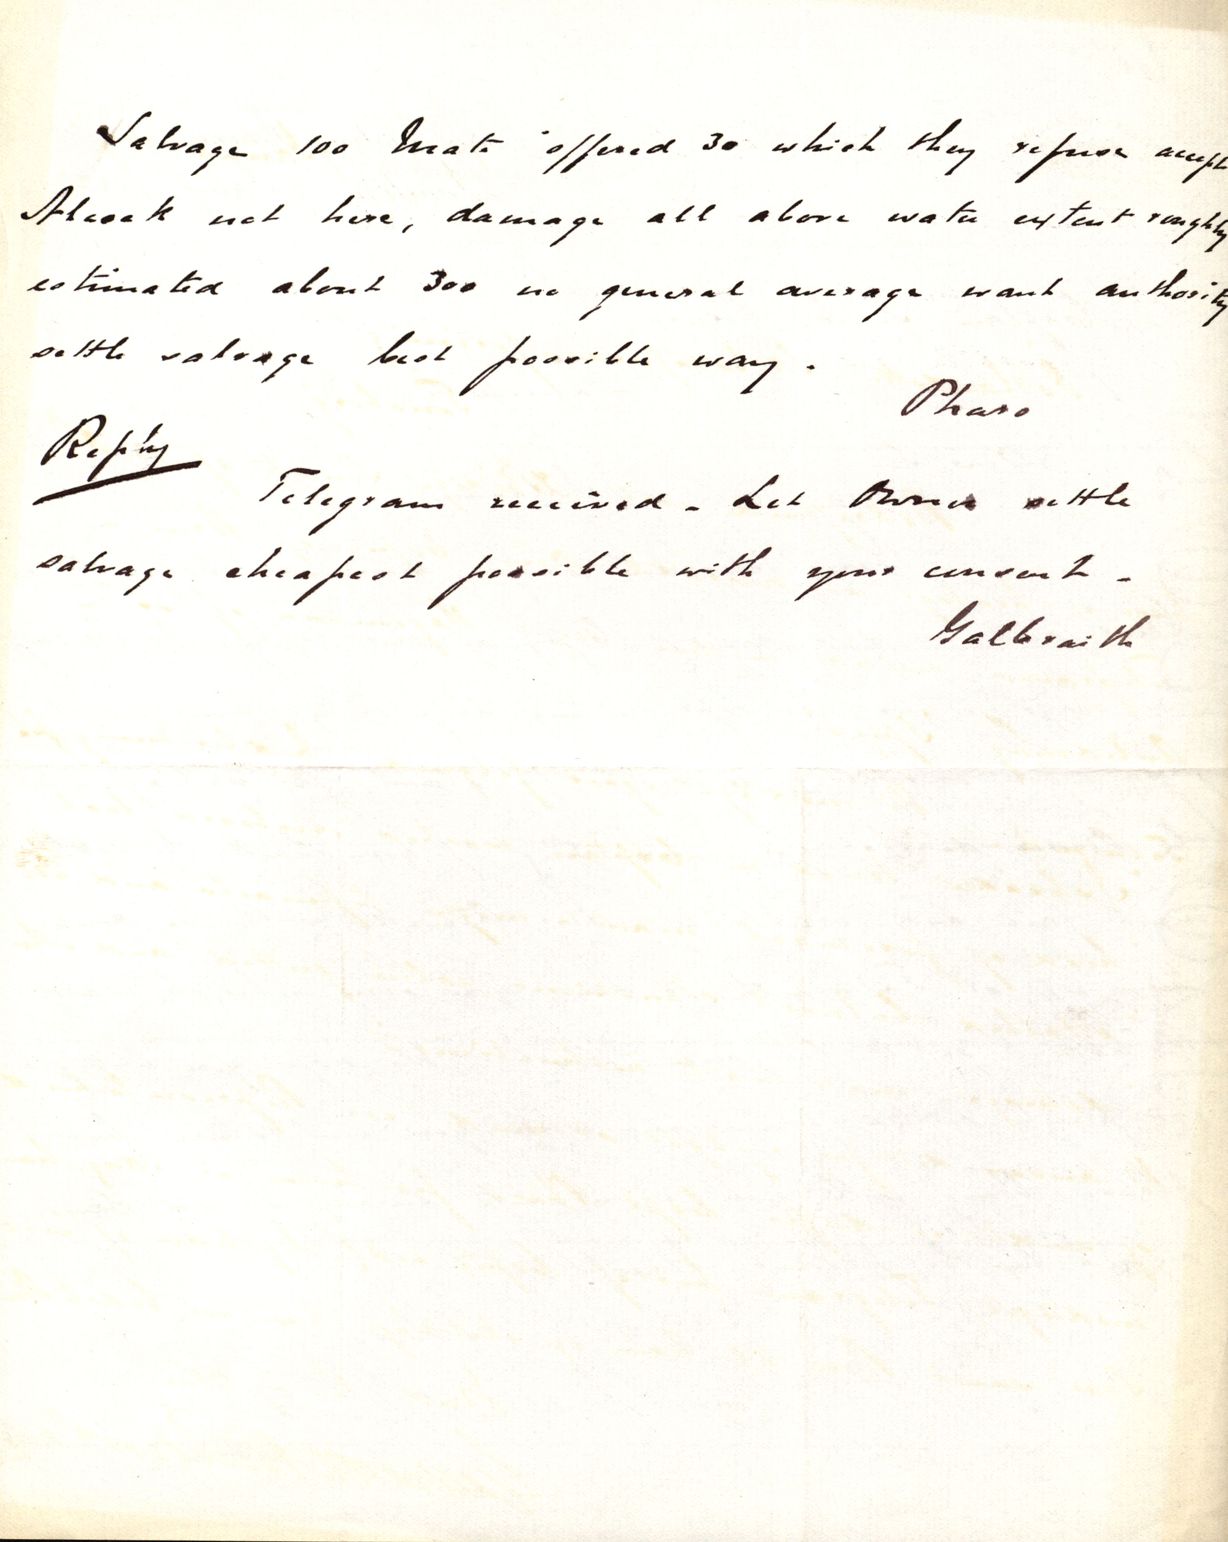 Salvage 100 Mate offered 30 which they refuse accept
not here, damage all above water extent roughly
estimated about 300 no general average want authority
settle salvage best possible way.
Pharo
Reply
Telegram received - Let Owner settle
salvage cheapest possible with your consent -
Galbraith